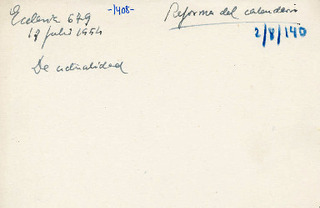 Ecclesia 679
-1408-
Reforma del calendario
17 julio 1954
2/8/140
De actualidad